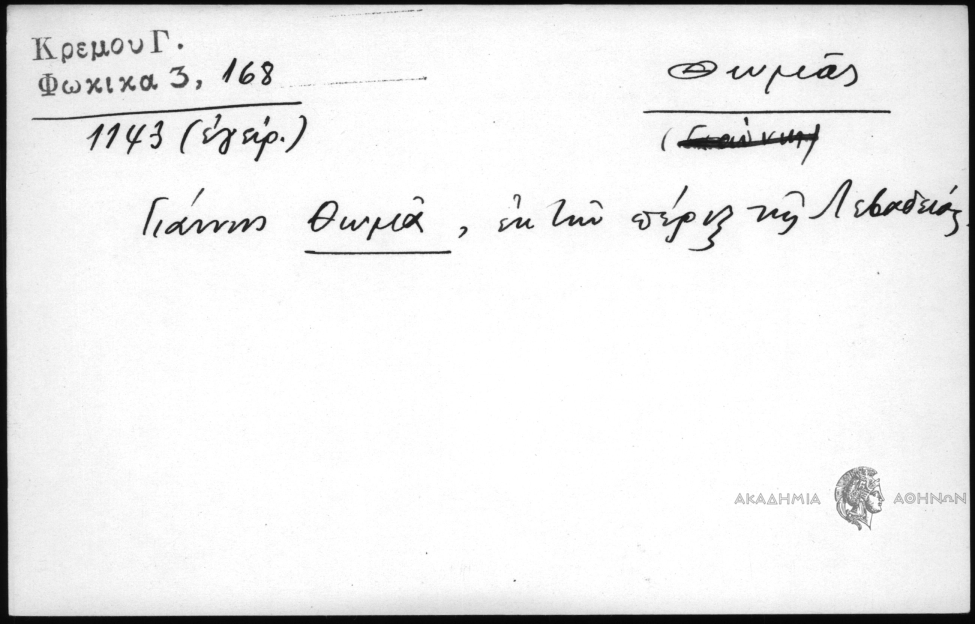 Κρεμου Γ.
Φωκικα 3, 168
1143 (ἐγείρ.)
Θωμᾶς
Γιάννης Θωμᾶ, ἐκ τῶν πέριξ τῆς Λεβαδειᾶς.
ΑΚΑΔΗΜΙΑ ΑΘΗΝΩΝ